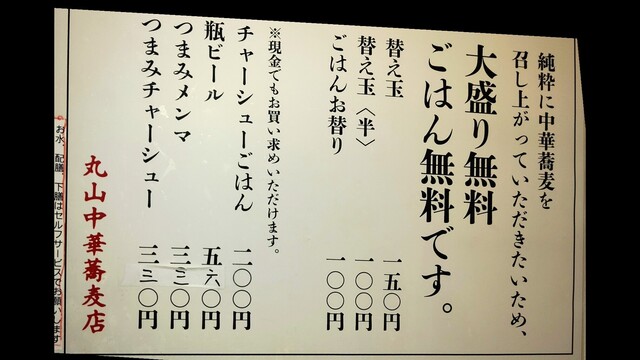 純粋に中華蕎麦を
召し上がっていただきたいため、
大盛り無料
ごはん無料です。
替え玉 一五〇円
替え玉〈半〉 一〇〇円
ごはんお替り 一〇〇円
※現金でもお買い求めいただけます。
チャーシューごはん 二〇〇円
瓶ビール 五六〇円
つまみメンマ 三三〇円
つまみチャーシュー 三三〇円
丸山中華蕎麦店
お水、配膳、下膳はセルフサービスでお願いします